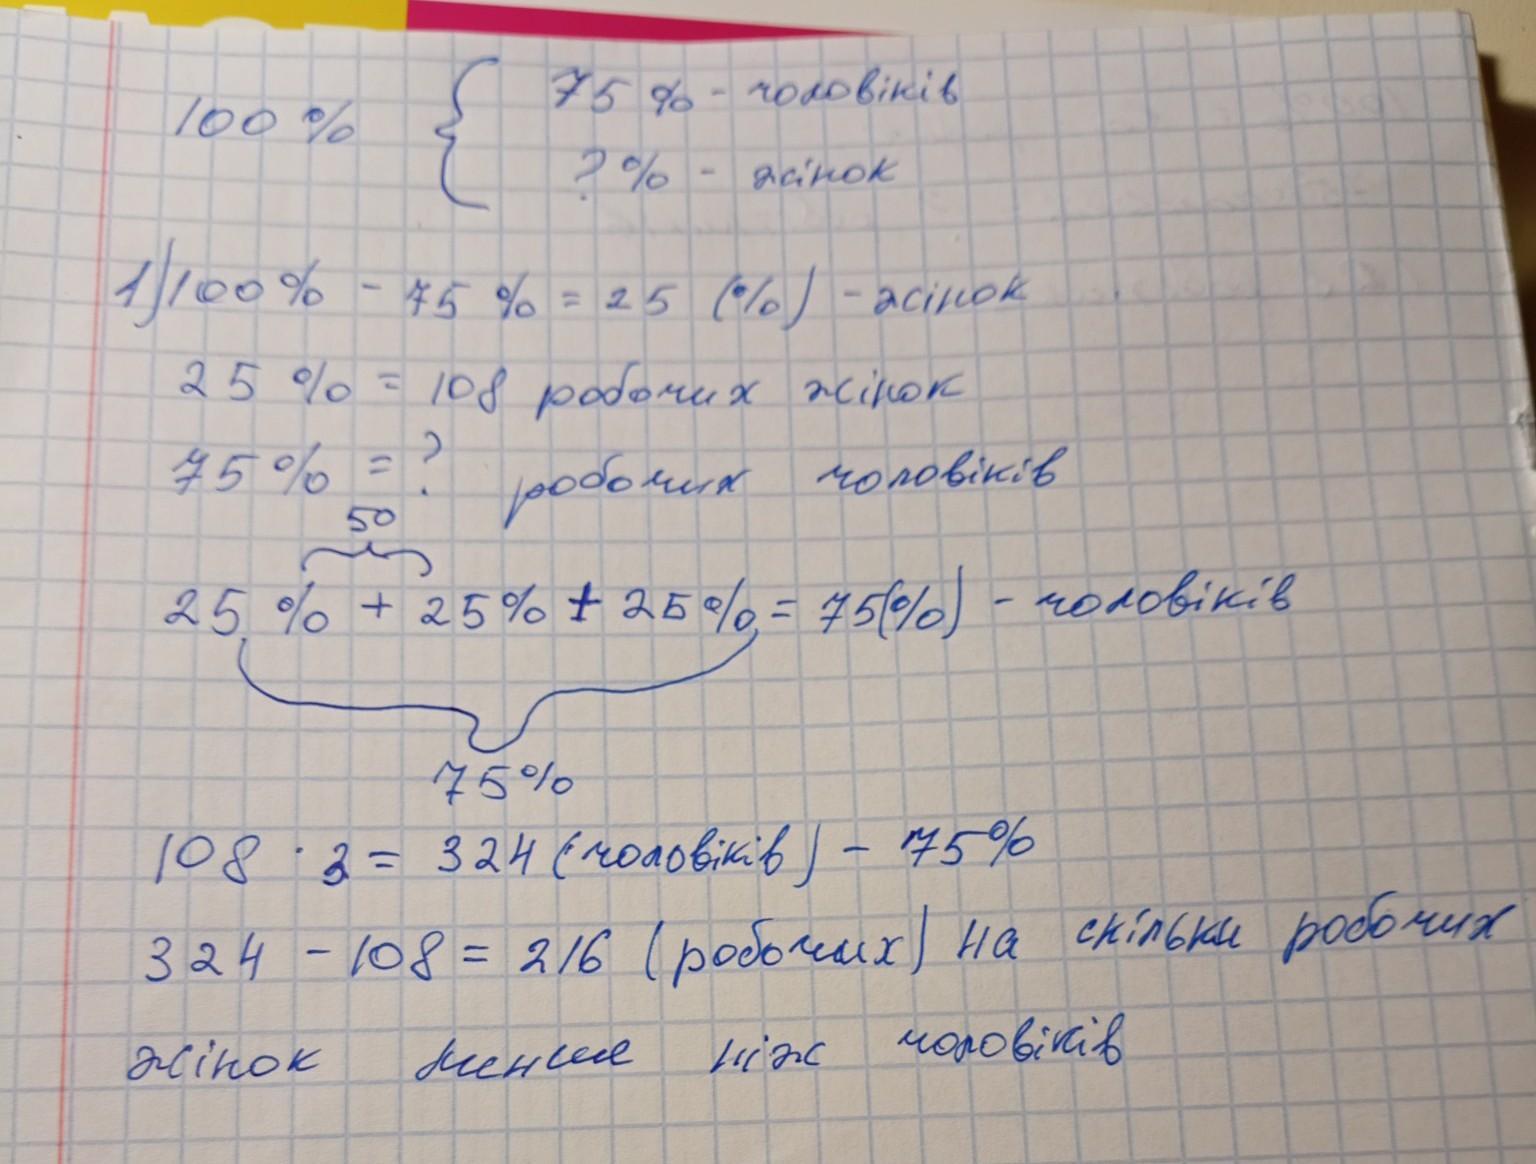 100 % { 75 % - чоловіків
? % - жінок
1) 100 % - 75 % = 25 (%) - жінок
25 % = 108 робочих жінок
75 % = ? робочих чоловіків
50
25 % + 25 % + 25 % = 75 (%) - чоловіків
75 %
108 · 3 = 324 (чоловіків) - 75 %
324 - 108 = 216 (робочих) на скільки робочих
жінок менше ніж чоловіків